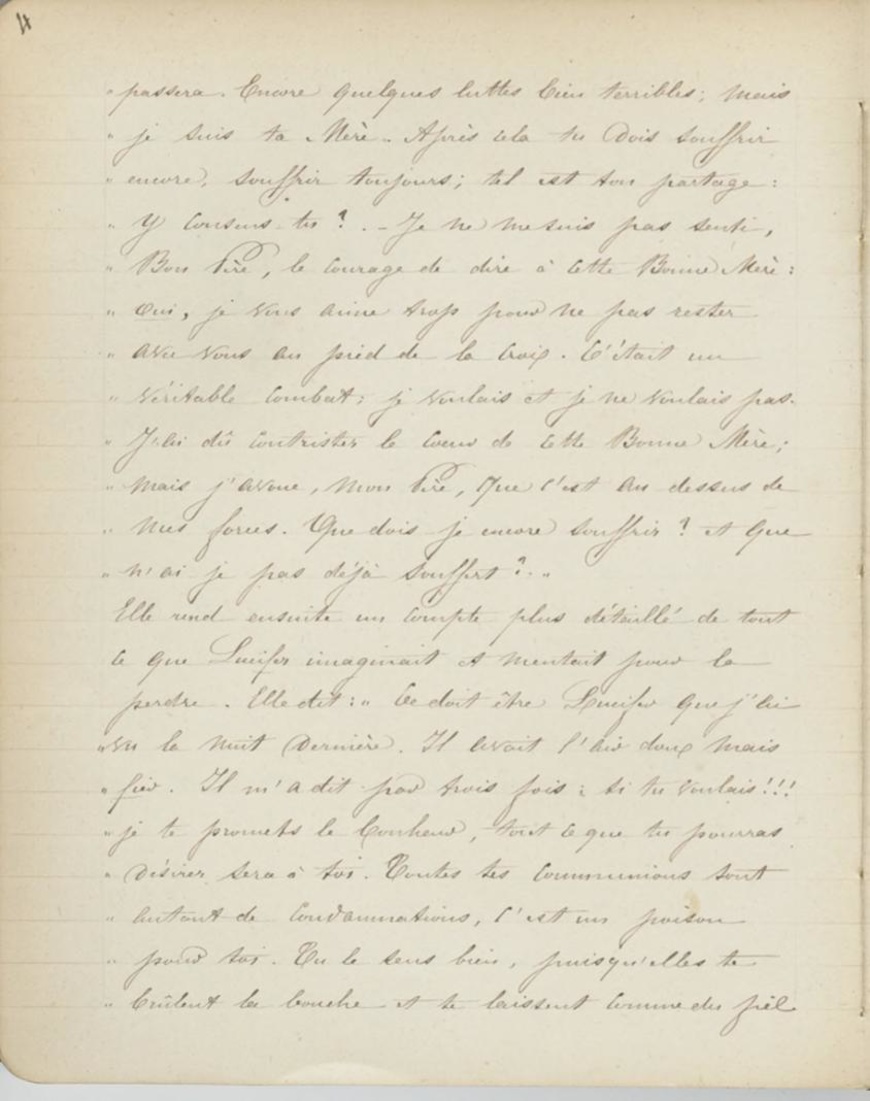 4
" passera. Encore quelques luttes bien terribles; mais
" je suis ta Mère. Après cela tu dois souffrir
" encore, souffrir toujours; tel est ton partage:
" y consens-tu? . _ Je ne me suis pas senti,
" Bon Père, le courage de dire à cette Bonne Mère:
" oui, je vous aime trop pour ne pas rester
" avec vous au pied de la croix. C'était un
" véritable combat; je voulais et je ne voulais pas.
" J'ai dû contrister le cœur de cette Bonne Mère;
" mais j'avoue, mon Père, que c'est au dessus de
" mes forces. Que dois-je encore souffrir? et que
" n'ai je pas déjà souffert? . "
Elle rend ensuite un compte plus détaillé de tout
ce que Lucifer imaginait et mentait pour la
perdre. Elle dit: " Ce doit être Lucifer que j'ai
" vu la nuit dernière. Il avait l'air doux mais
" fier. Il m'a dit par trois fois: si tu voulais!!!
" je te promets le bonheur, tout ce que tu pourras
" désirer sera à toi. Toutes tes communions sont
" autant de condamnations, c'est un poison
" pour toi. Tu le sens bien, puisqu'elles te
" brûlent la bouche et te laissent comme du fiel